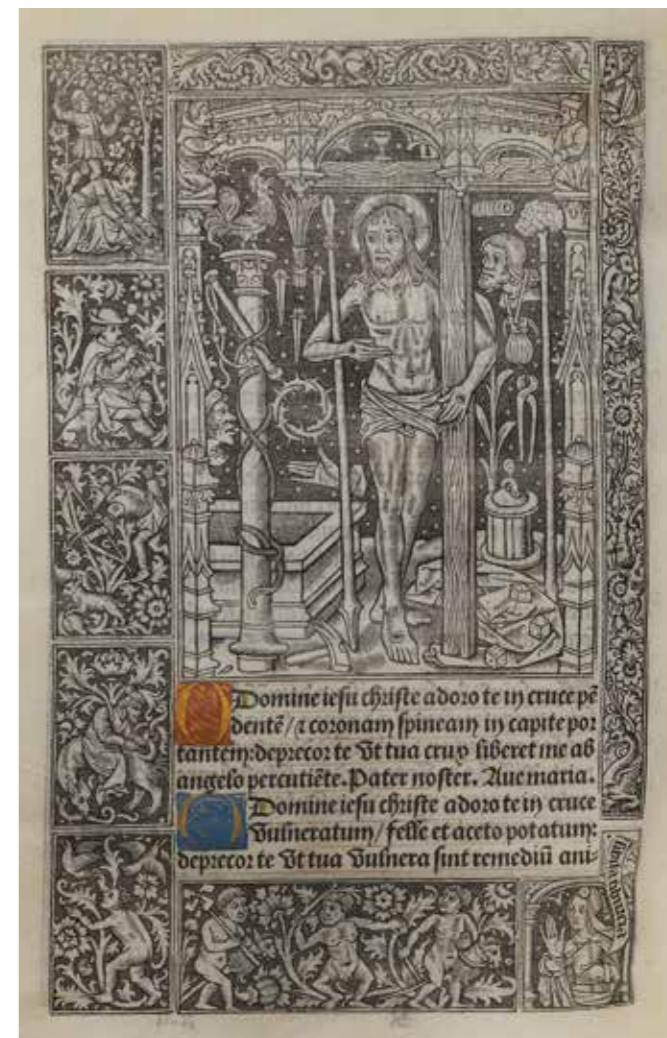 O Domine iesu christe adoro te in cruce pē
dentē / ⁊ coronam spineam in capite por
tantem: deprecor te Vt tua crux liberet me ab
angelo percutiēte. Pater noster. Aue maria.
O Domine iesu christe adoro te in cruce
Vulneratum / felle et aceto potatum:
deprecor te Vt tua Vulnera sint remediū ani-